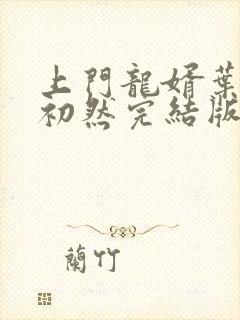 上門龍婿葉
初然完結版
蘭竹